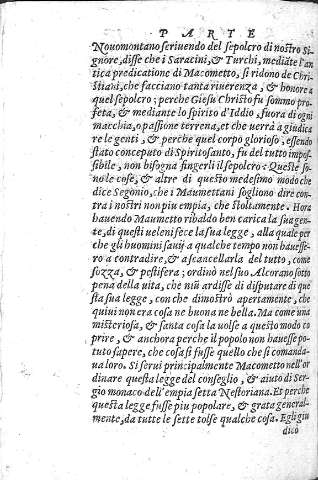 PARTE
Nouomontano scriuendo del sepolcro di nostro Si-
gnore, disse che i Saracini, & Turchi, mediãte l'an
tica predicatione di Macometto, si ridono de Chri-
stiani, che facciano tanta riuerenza, & honore a
quel sepolcro; perche Giesu Christo fu sommo pro-
feta, & mediante lo spirito d'Iddio, fuora di ogni
macchia, o passione terrena, et che uerrà a giudica
re le genti, & perche quel corpo glorioso, essendo
stato conceputo di Spiritosanto, fu del tutto impos-
sibile, non bisogna fingerli il sepolcro. Queste so-
no le cose, & altre di questo medesimo modo che
dice Segonio, che i Maumettani sogliono dire con-
tra i nostri non piu empia, che stoltamente. Hora
hauendo Maumetto ribaldo ben carica la sua gen-
te, di questi ueleni fece la sua legge, alla quale per
che gli huomini sauij a qualche tempo non hauesse-
ro a contradire, & a scancellarla del tutto, come
sozza, & pestifera; ordinò nel suo Alcorano sotto
pena della uita, che niũ ardisse di disputare di que
sta sua legge, con che dimostrò apertamente, che
quiui non era cosa ne buona ne bella. Ma come una
misteriosa, & santa cosa la uolse a questo modo co
prire, & anchora perche il popolo non hauesse po-
tuto sapere, che cosa si fusse quello che si comanda-
ua loro. Si seruì principalmente Macometto nell'or
dinare questa legge del conseglio, & aiuto di Ser-
gio monaco dell'empia setta Nestoriana. Et perche
questa legge fusse piu popolare, & grata general-
mente, da tutte le sette tolse qualche cosa. Egli giu
dicò